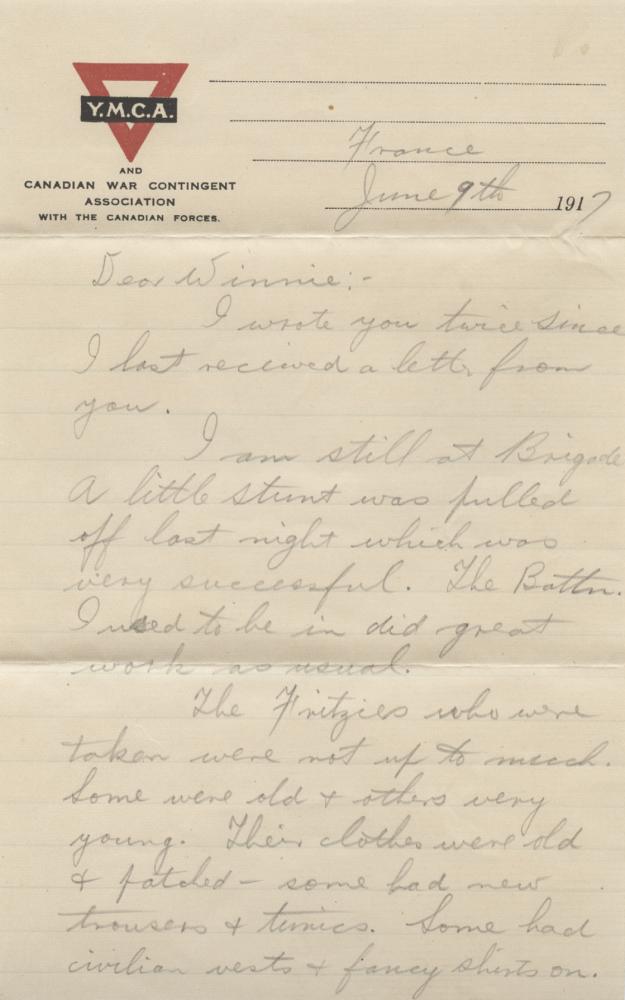 Y.M.C.A.
AND
CANADIAN WAR CONTINGENT
ASSOCIATION
WITH THE CANADIAN FORCES.
France
June 9th 1917
Dear Winnie:-
I wrote you twice since
I last received a letter from
you.
I am still at Brigade
A little stunt was pulled
off last night which was
very successful. The Battn.
I used to be in did great
work as usual.
The Fritzies who were
taken were not up to much.
Some were old & others very
young. Their clothes were old
& patched - some had new
trousers & tunics. Some had
civilian vests & fancy shirts on.